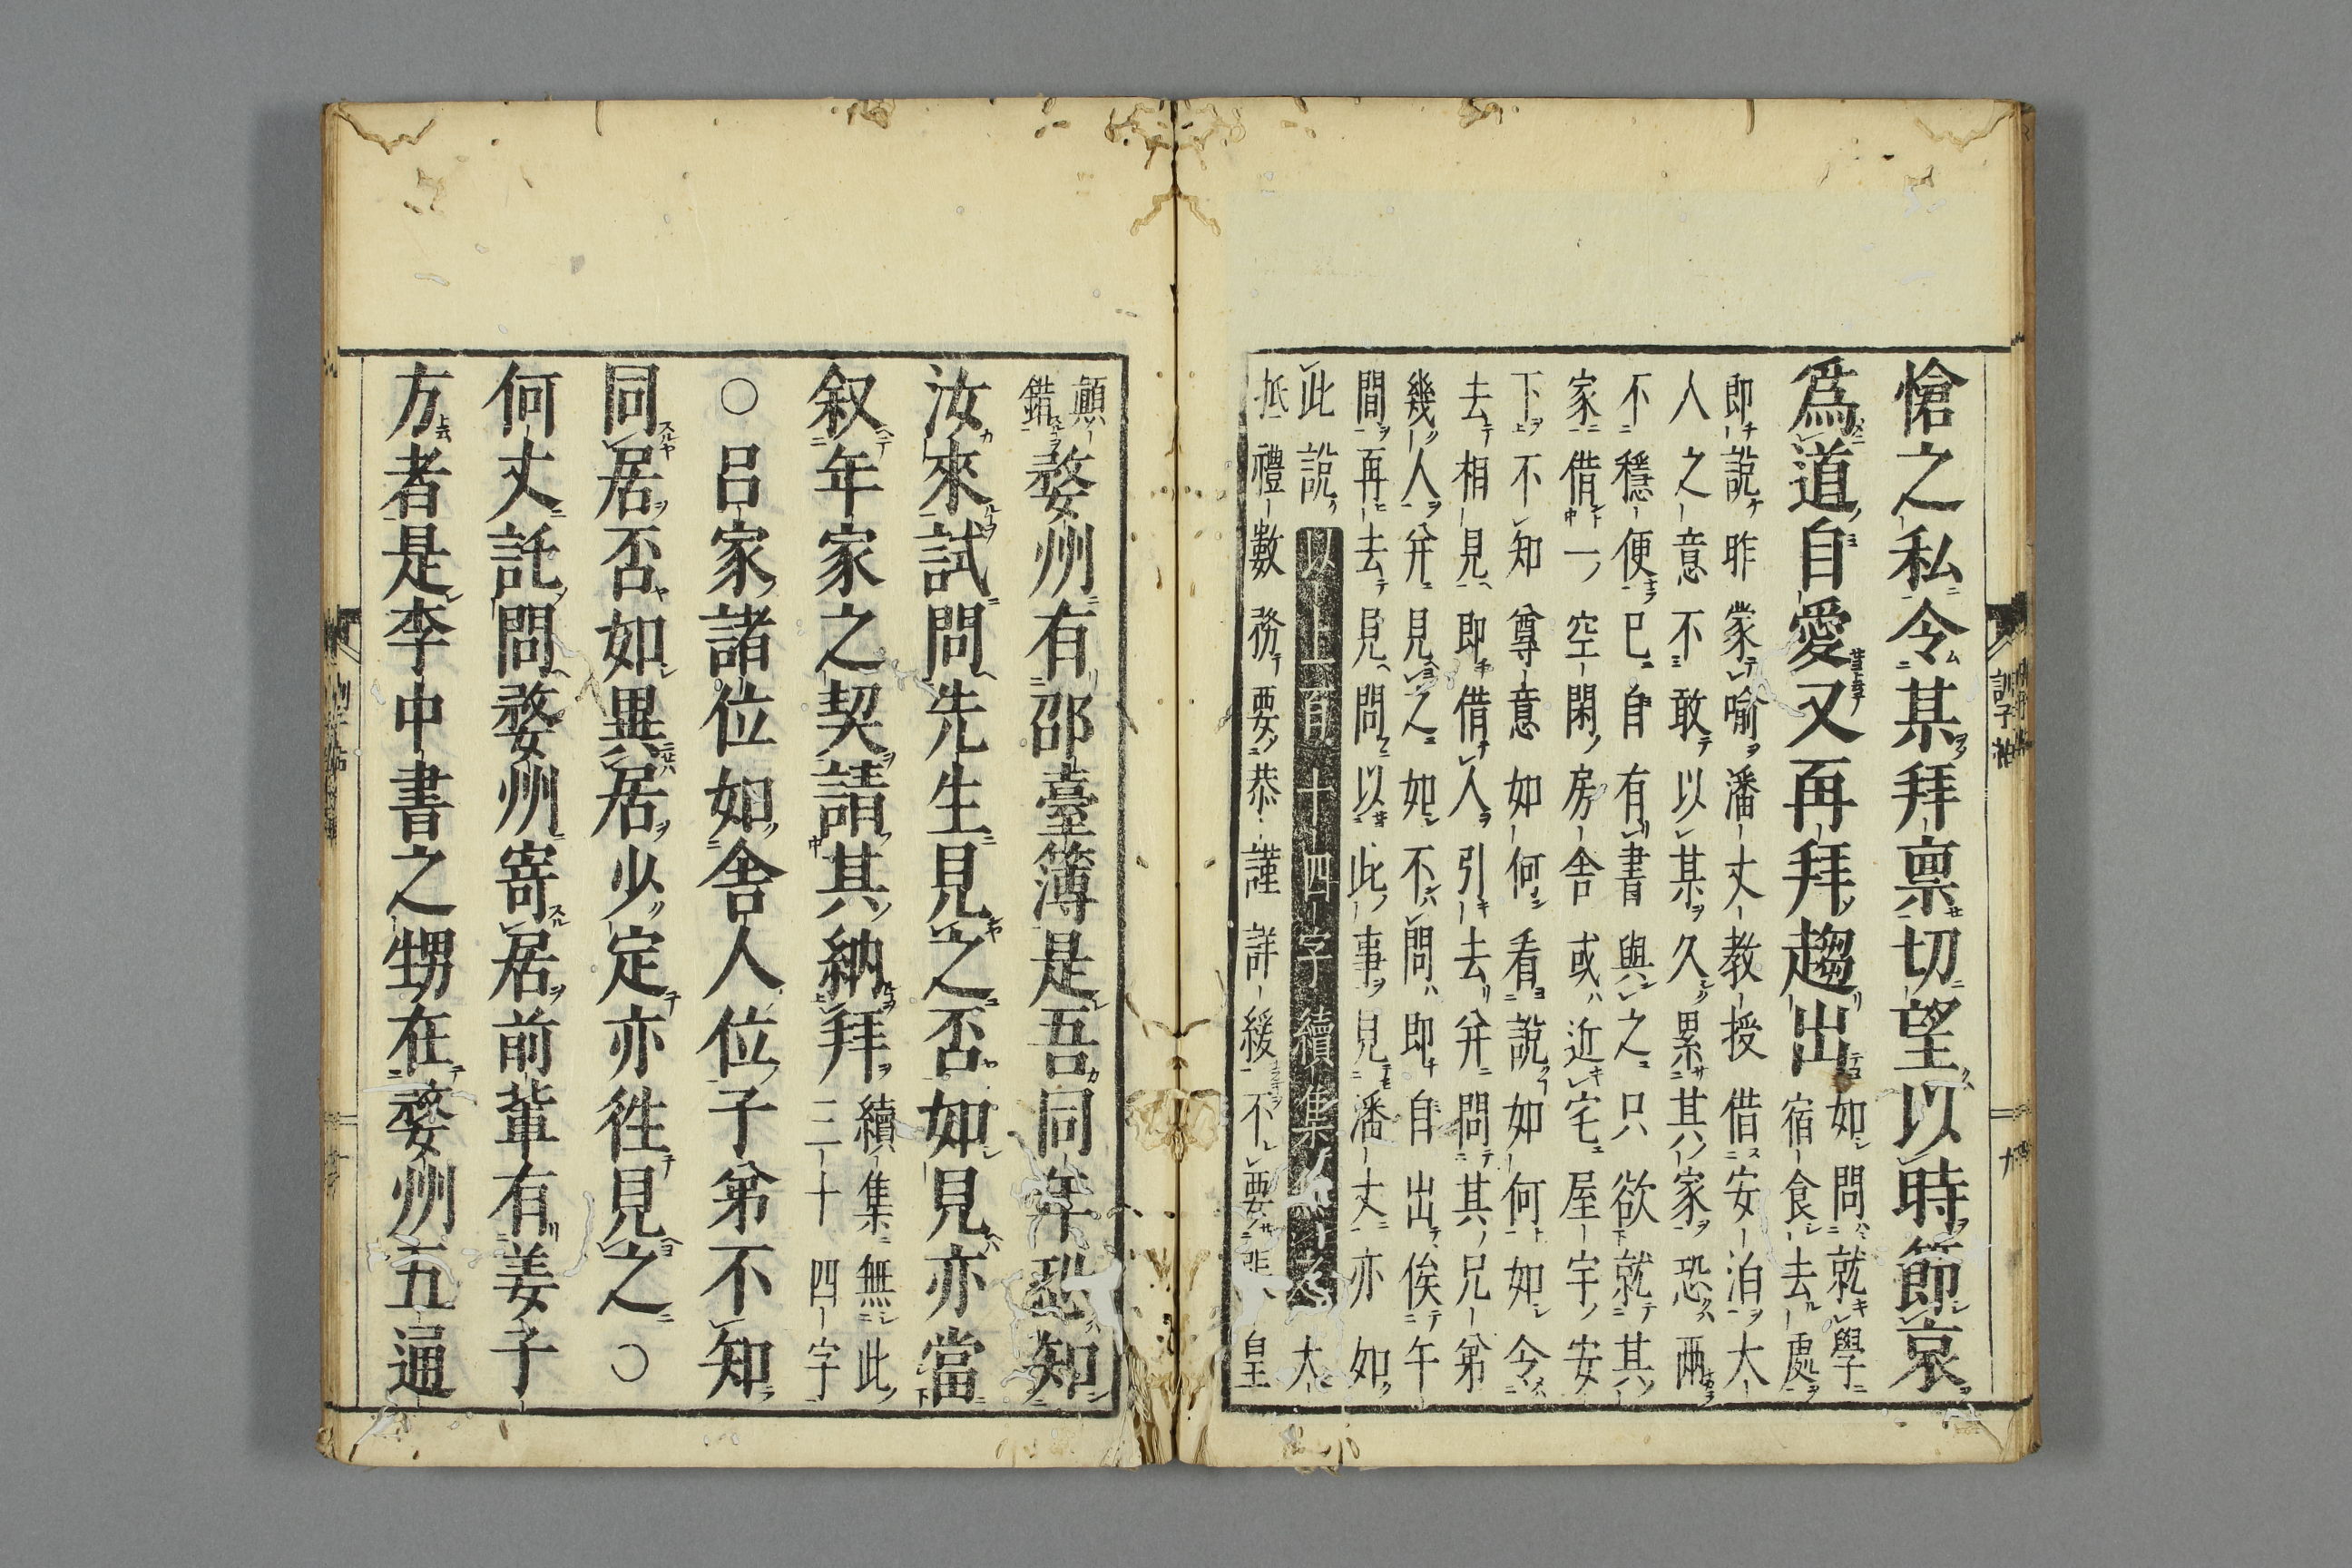 愴之私令某拜稟切望以時節哀
爲道自愛又再拜趨出
如問就學
宿食去處
即說昨蒙喻潘丈教授借安泊大
人之意不敢以某久累其家恐兩
不穩便已自有書與之只欲就其
家借一空閑房舍或近宅屋宇安
下不知尊意如何看說如何如令
去相見即借人引去并問其兄弟
幾人并見之如不問即自出俟午
間再去見問以此事見潘丈亦如
此說
以上二百十四字續集
大
抵禮數務要恭謹詳緩不要
皇
顛
錯
婺州有邵臺簿是吾同年恐知
汝來試問先生見之否如見亦當
叙年家之契請其納拜
續集無此
三十四字
○呂家諸位如舍人位子弟不知
同居否如異居少定亦徃見之○
何丈託問婺州寄居前輩有姜子
方者是李中書之甥在婺州五通
訓子帖
九